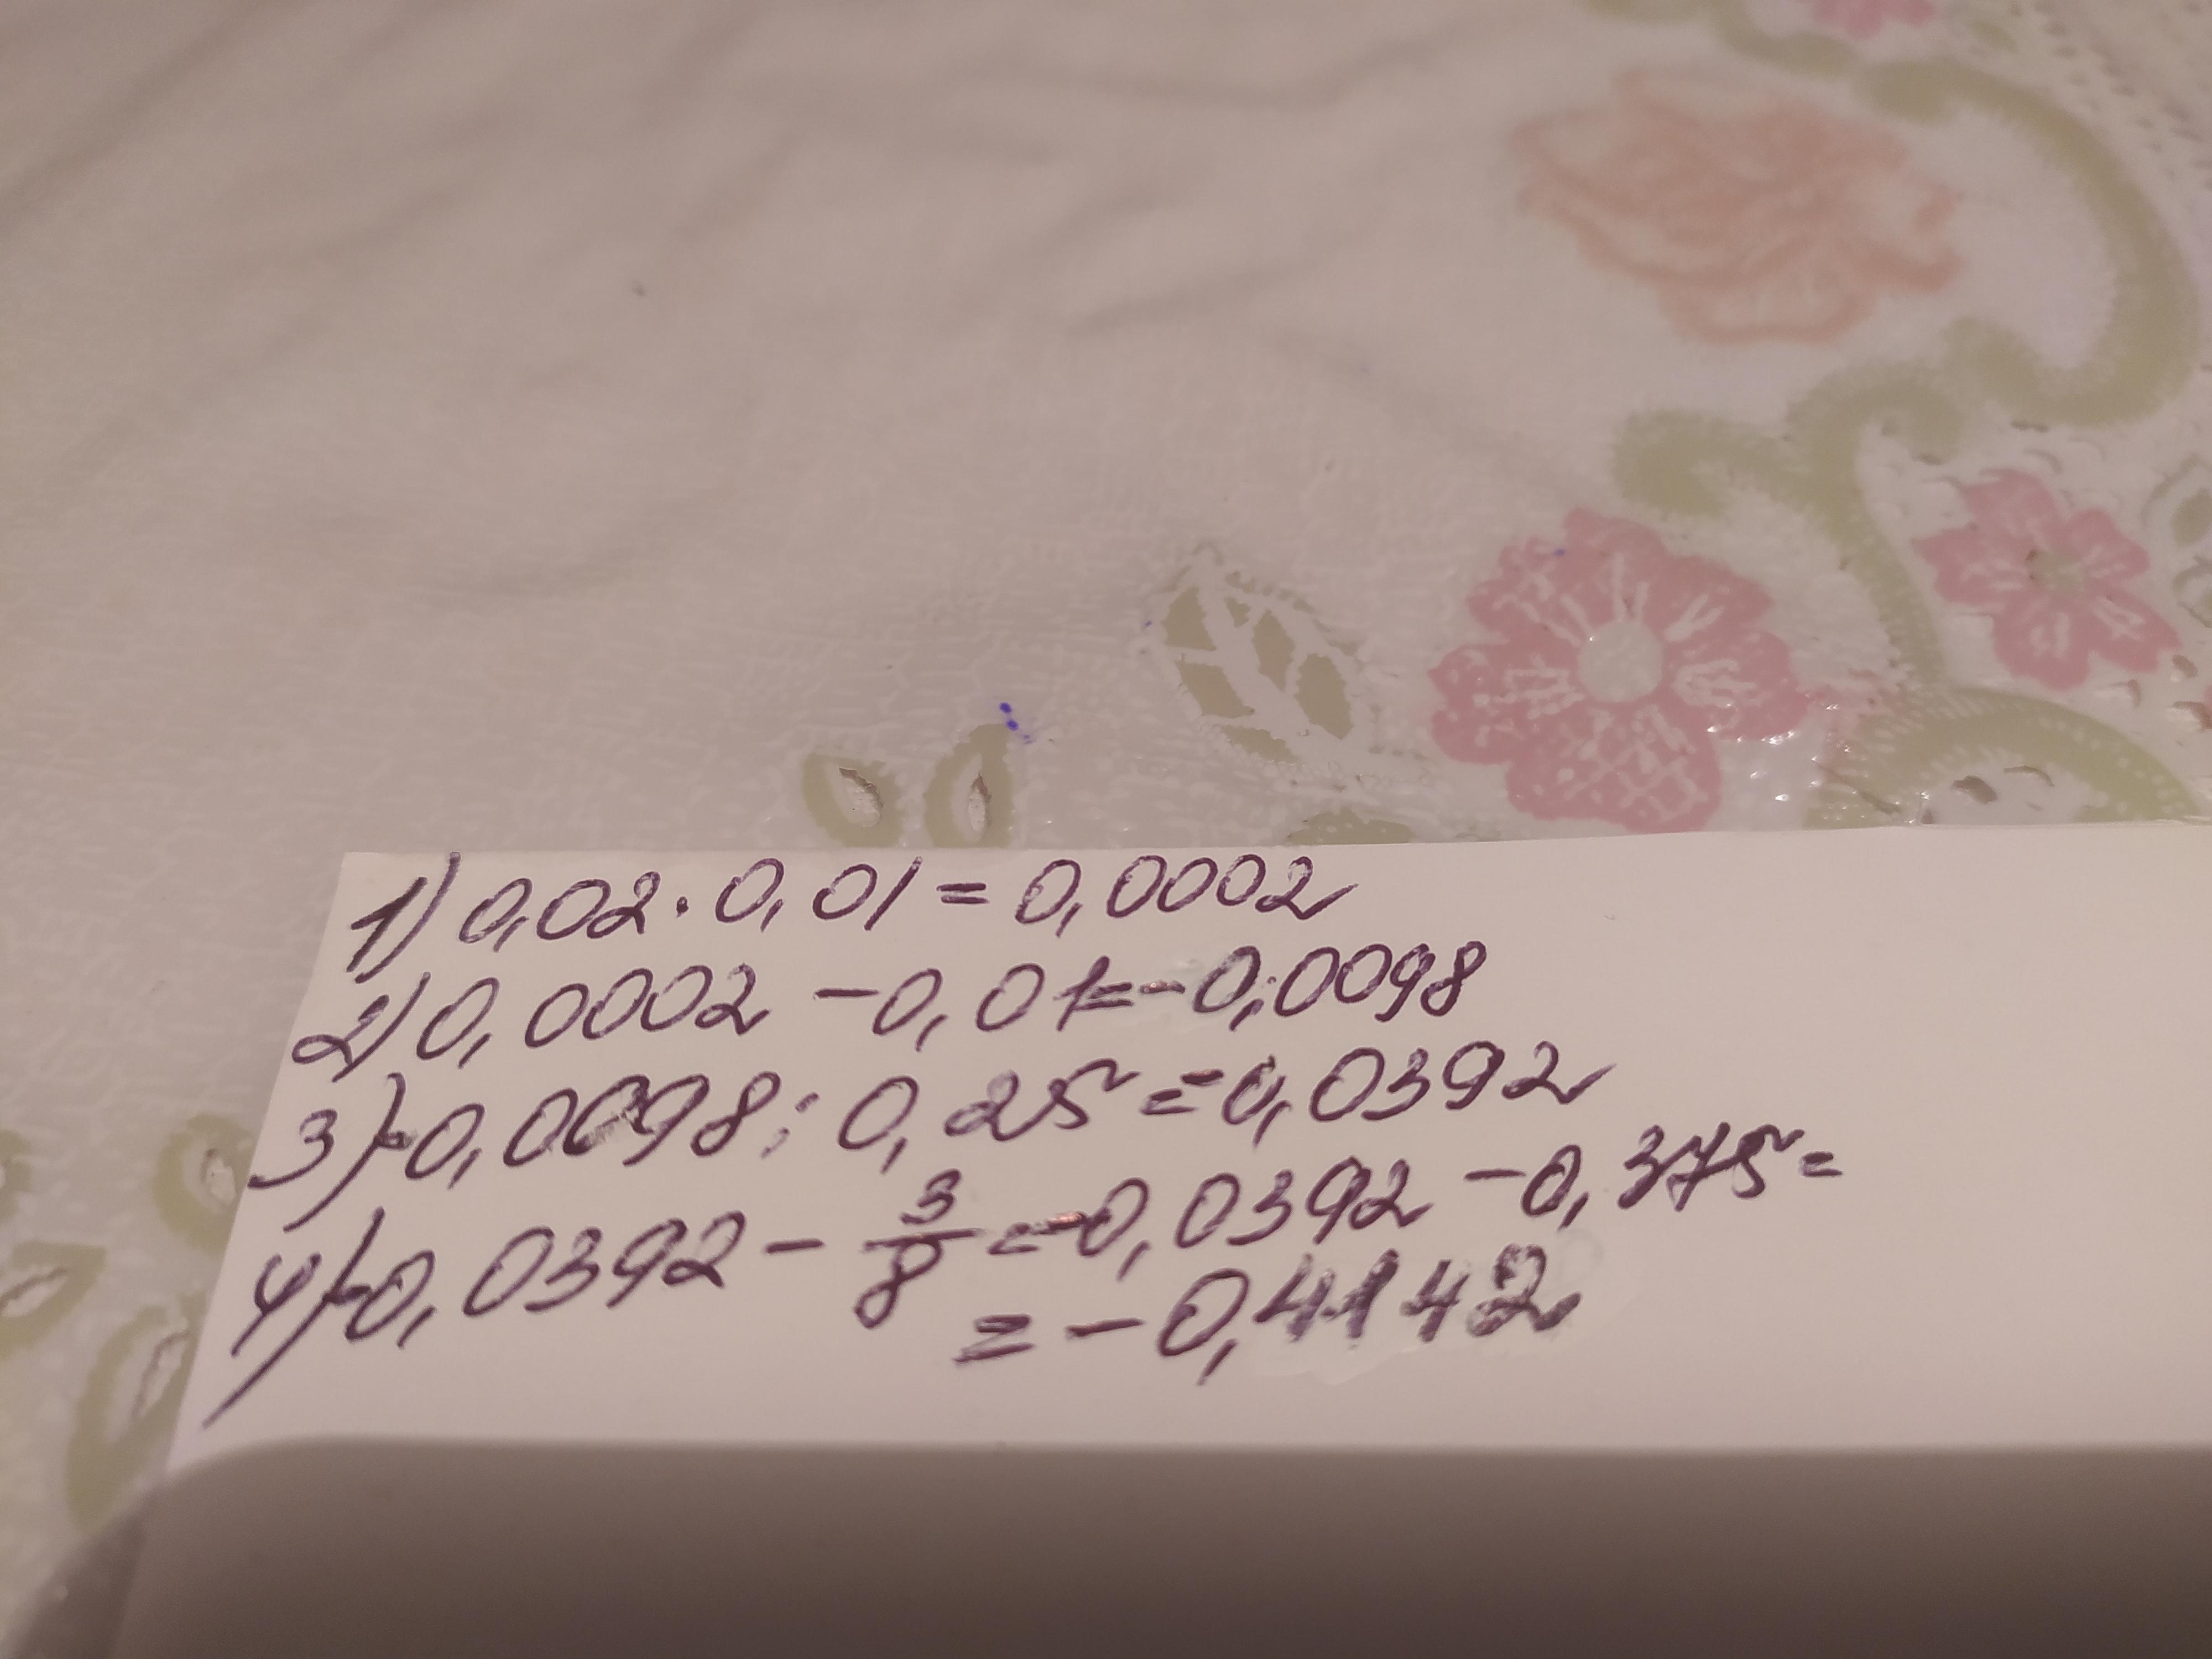 1) 0,02 · 0,01 = 0,0002
2) 0,0002 - 0,01 = -0,0098
3) -0,0098 : 0,25 = -0,0392
4) -0,0392 - 3/8 = -0,0392 - 0,375 =
= -0,4142